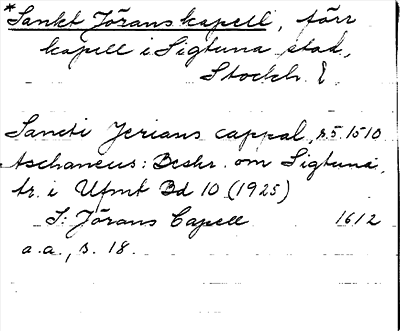 *Sankt Jörans kapell, förr
kapell i Sigtuna stad,
Stockh.
Sancti Jerians cappal, s. 5. 1510
Aschaneus: Beskr. om Sigtuna,
tr. i Ufmt Bd 10 (1925)
S: Jörans Capell 1612
a.a., s. 18.